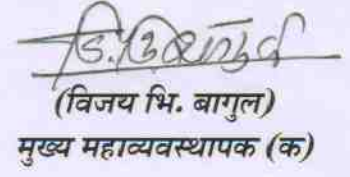 (विजय भि. बागुल)
मुख्य महाव्यवस्थापक (क)